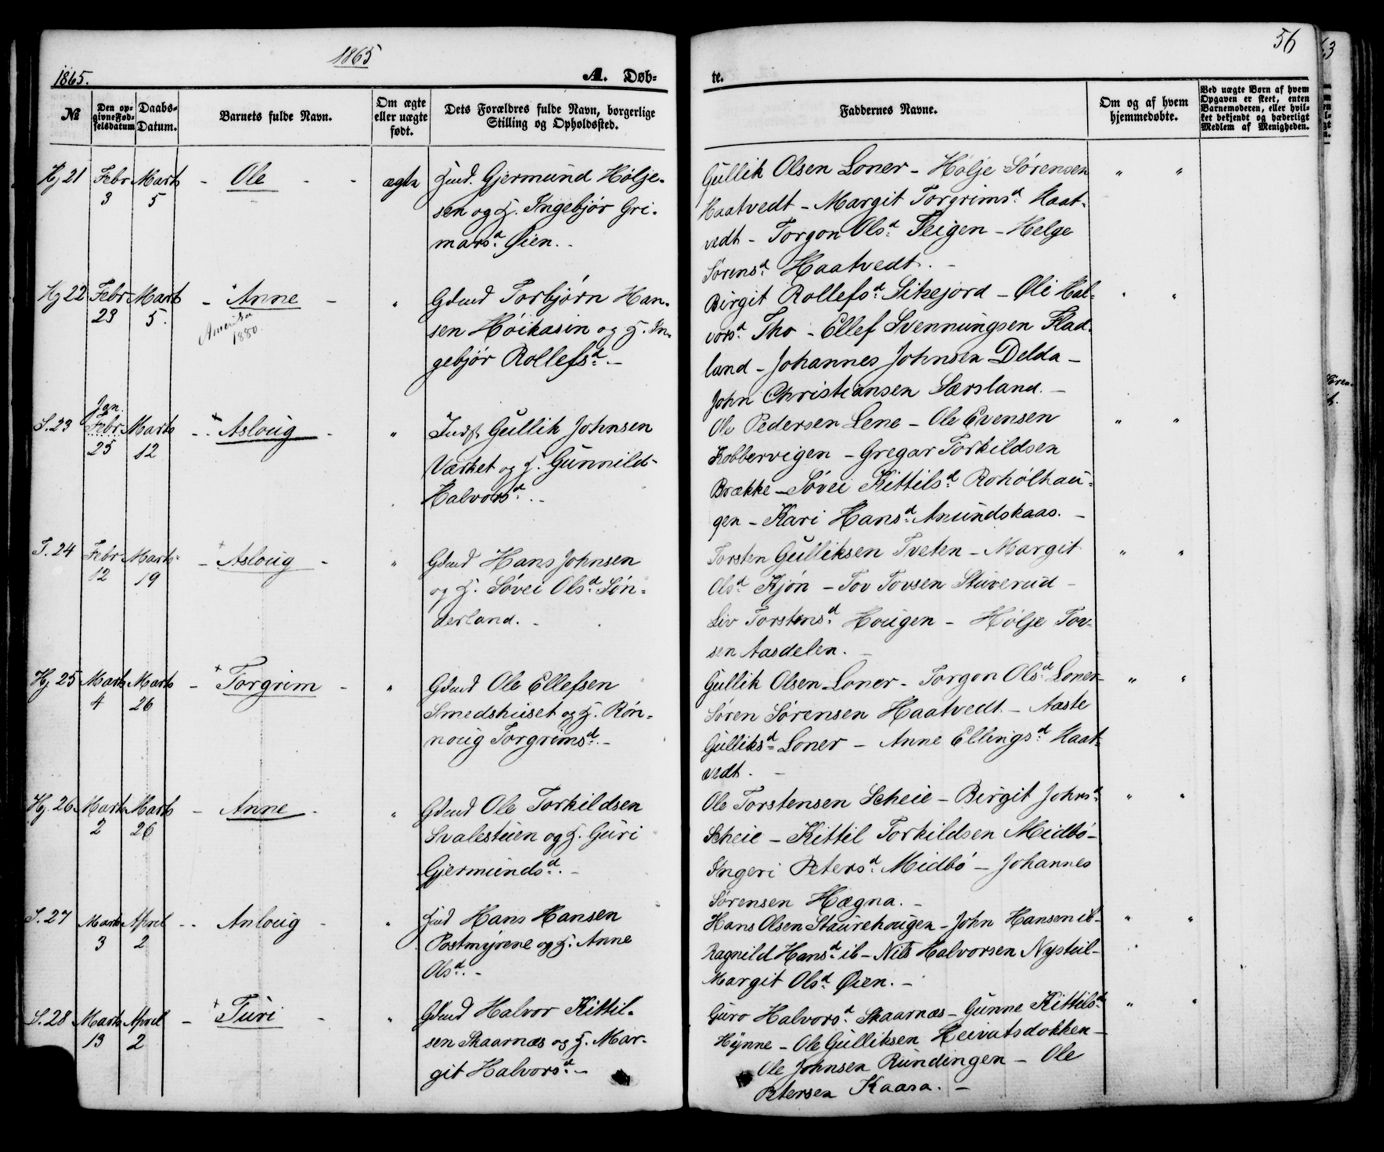 1865
56
1865.
A. Døb-
te.
№
Den opgivne Fødselsdatum.
Daabs-Datum.
Barnets fulde Navn.
Om ægte eller uægte født.
Dets Forældres fulde Navn, borgerlige Stilling og Opholdssted.
Faddernes Navne.
Om og af hvem hjemmedøbte.
Ved uægte Børn af hvem Opgaven er skeet, enten Barnemoderen, eller hvilket bekjendt og hæderligt Medlem af Menigheden.
Hj 21 Febr 3 Marts 5 - Ole - - ægte
Gjermund Hølje-
sen og H. Ingebjør Gri-
marsd. Øien. -
Gullik Olsen Loner - Hølje Sørensen " "
Haatvedt - Margit Torgrimsd. Haat-
vedt - Torgon Olsd. Teigen - Helge
Sørensd. Haatvedt. -
Hj 22 Febr 23 Mart 5. - Anne - "
Amerika
1880.
Gdmd Torbjørn Han-
sen Høikasin og H. In-
gebjør Rollefsd. -
Birgit Rollefsd. Sikejord - Øli Hal- " "
vorsd. Tho - Ellef Svennungsen Flad
land - Johannes Johnsen Delda -
John Christiansen Særsland. -
S. 23 Jan. Febr 25 Marts 12 - + Aslaug - "
Indf Gullik Johnsen
Værket og H. Gunnild
Halvorsd. -
Ole Pedersen Lene - Ole Evensen " "
Kobbervigen - Gregar Torkildsen
Brække - Søvei Kittilsd. Roholthau-
gen - Kari Hansd. Anundskaas. -
T. 24 Febr 12 Marts 19 - + Aslaug - "
Gdmd Hans Johnsen
og H. Søvei Olsd. Søn-
derland. -
Torsten Gulliksen Tveten - Margit " "
Olsd. Kjøn - Tov Tovsen Stuverud -
Liv Torstensd. Hougen - Hølje Tov-
sen Aasdelen. -
Hj 25 Marts 4 Marts 26 - + Torgrim - "
Gdmd Ole Ellefsen
Smedshuset og H. Røn-
noug Torgrimsd. -
Gullik Olsen Loner - Torgon Olsd. Loner " "
Søren Sørensen Haatvedt - Aaste
Gulliksd. Loner - Anne Ellingsd. Haat-
vedt. -
Hj 26 Mart 2 Marts 26 - Anne - "
Gdmd Ole Torkildsen
Svalestuen og H. Guri
Gjermundsd. -
Ole Torstensen Scheie - Birgit Johnsd. " "
Scheie - Kittil Torkildsen Midbø -
Ingeri Petersd. Midbø - Johannes
Sørensen Hægna. -
T. 27 Marts 3 April 2 - - Anloug "
Hans Hansen
Postmyrene og H. Anne
Olsd. -
Hans Olsen Staurehougen - John Hansen ib - " "
Ragnild Hansd. ib - Nils Halvorsen Nystuil -
Margit Olsd. Øien. -
S. 28 Marts 13 April 2 - + Turi - "
Gdmd Halvor Kittil-
sen Skaarnæs og H. Mar-
git Halvorsd. -
Guro Halvorsd. Skaarnæs - Gunne Kittilsd " "
Hynne - Ole Gulliksen Heivatsdokken -
Ole Johnsen Rundingen - Ole
Petersen Kaasa. -